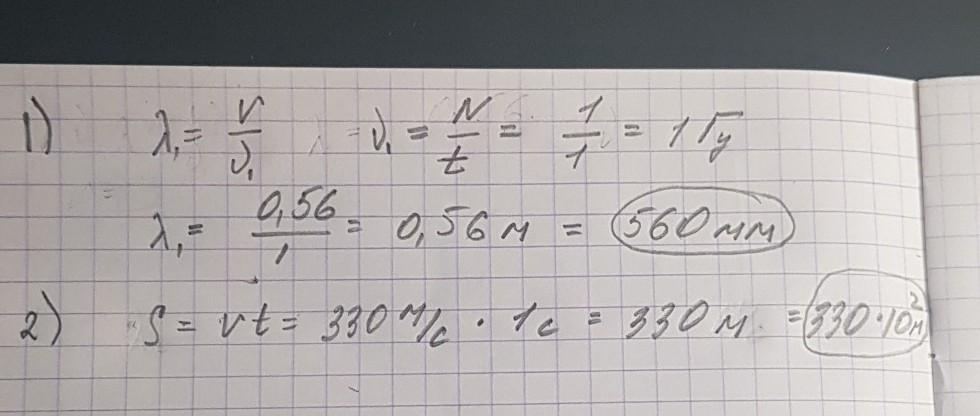 1) λ₁ = v/ν₁ ν₁ = N/t = 1/1 = 1 Гц
λ₁ = 0,56/1 = 0,56 м = 560 мм
2) S = vt = 330 м/с · 1 с = 330 м = 330·10² м